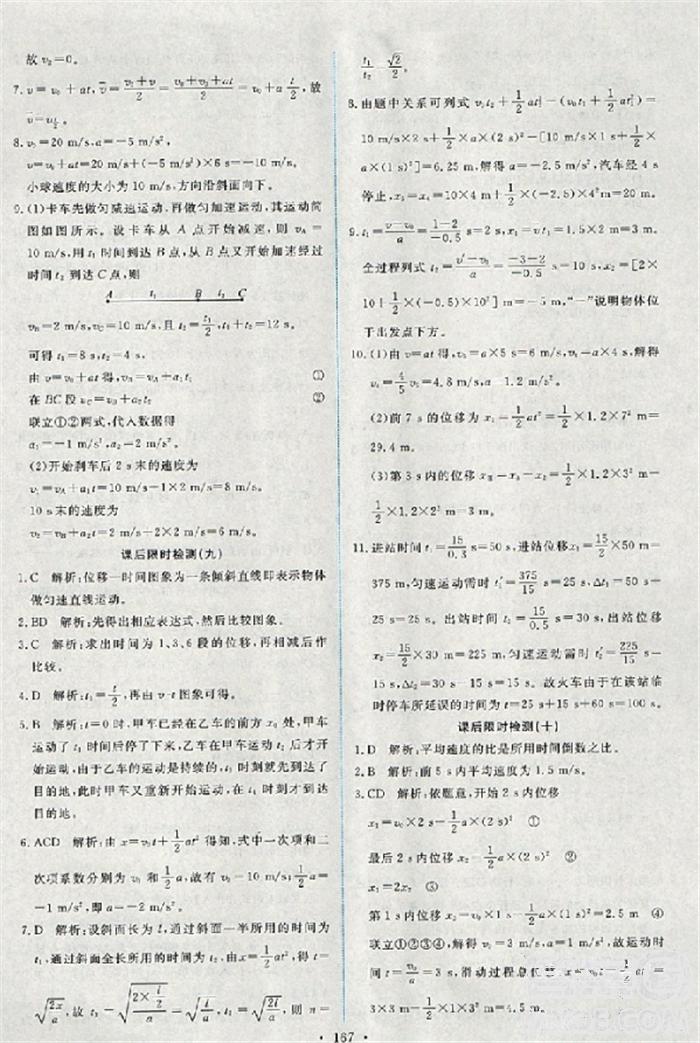 故 v₂=0。
7. v=v₀+at, v̄=(v₀+v)/2=(v₀+v₀+at)/2=v₀+a t/2, 故
v̄=v_{t/2}。
8. v₀=20 m/s, a=-5 m/s²
v=v₀+at=20 m/s+(-5 m/s²)×6 s=-10 m/s,
小球速度的大小为 10 m/s, 方向沿斜面向下。
9. (1)卡车先做匀减速运动,再做匀加速运动,其运动简
图如图所示。设卡车从 A 点开始减速, 则 v_A=
10 m/s,用 t₁ 时间到达 B 点,从 B 点又开始加速经过
时间 t₂ 到达 C 点,则
A t₁ B t₂ C
v_B=2 m/s,v_C=10 m/s,且 t₂=t₁/2,t₁+t₂=12 s。
可得 t₁=8 s,t₂=4 s
由 v=v₀+at 得,v_B=v_A+a₁t₁ ①
在 BC 段 v_C=v_B+a₂t₂ ②
联立①②两式,代入数据得
a₁=-1 m/s²,a₂=2 m/s²
(2)开始刹车后 2 s 末的速度为
v₁=v_A+a₁t=10 m/s-1×2 m/s=8 m/s,
10 s 末的速度为
v₂=v_B+a₂t=2 m/s+2×2 m/s=6 m/s。
课后限时检测(九)
1. C 解析:位移—时间图象为一条倾斜直线即表示物体
做匀速直线运动。
2. BD 解析:先得出相应表达式,然后比较图象。
3. C 解析:求出时间为 1、3、6 段的位移,再相减后作
比较。
4. D 解析:t₁=t/2,再由 v-t 图象可得。
5. B 解析:t=0 时,甲车已经在乙车的前方 x₀ 处,甲车
运动了 t₂ 时间后停了下来,乙车在甲车运动 t₁ 时开始
运动,由于乙车的运动是持续的,t₃ 时刻就先到达了
目的地,此时甲车又重新开始运动,在 t₄ 时刻到达目
的地。
6. ACD 解析:由 x=v₀t+1/2 at² 得知,式中一次项和二
次项系数分别为 v₀ 和 1/2 a,故有 v₀=10 m/s,1/2 a=
-1 m/s²,即 a=-2 m/s²。
7. D 解析:设斜面长为 l,通过斜面一半所用的时间为
t₁,通过斜面全长所用的时间为 t₂,由 x=1/2 at² 得,t
=√(2x/a),故 t₁=√(2×(l/2)/a)=√(l/a),t₂=√(2l/a),则 n=
t₁/t₂=√2/2。
8. 由题中关系可列式 v₀t₂+1/2 at₂²-(v₀t₁+1/2 at₁²)=
10 m/s×2 s+1/2×a×(2 s)²-[10 m/s×1 s+1/2×
a×(1 s)²]=6.25 m,解得 a=-2.5 m/s²,汽车经 4 s
停止,x₅=x₄=10×4 m-1/2×2.5×4² m=20 m。
9. t₁=(v-v₀)/a=(1-2)/-0.5 s=2 s,x=vt₁=1×10 m=10 m,
全过程列式 t₂=(v′-v)/a=(-3-2)/-0.5 s=10 s,x=[2×
10+1/2×(-0.5)×10²] m=-5 m,“-”说明物体位
于出发点下方。
10. (1)由 v=at 得,v₅=a×5 s=6 m/s,v₄=a×4 s,解得
v₄=4/5 v₅=4.8 m/s,a=1.2 m/s²。
(2)前 7 s 的位移为 x₁=1/2 at²=1/2×1.2×7² m=
29.4 m。
(3)第 3 s 内的位移 xⅢ=x₃-x₂=1/2×1.2×3² m-
1/2×1.2×2² m=3 m。
11. 进站时间 t₁=15/0.5 s=30 s,进站位移 x₁=15/2×50 m=
375 m,匀速运动需时 t₁′=375/15 s=25 s,Δt₁=50 s-25
s=25 s。出站时间 t₂=15/0.5 s=30 s,出站位移 x₂
=15/2×30 m=225 m,匀速运动需时 t₂′=225/15 s=15 s,
Δt₂=30 s-15 s=15 s。故火车由于在该站临
时停车所延误的时间为 t=25 s+15 s+60 s=100 s。
课后限时检测(十)
1. D 解析:平均速度的比是所用时间倒数之比。
2. D 解析:前 5 s内平均速度为 1.5 m/s。
3. CD 解析:依题意,开始 2 s内位移
x₁=v₀×2 s-1/2 a×(2 s)² ①
最后 2 s内位移 x₂=1/2 a×(2 s)² ②
x₁=2x₂ ③
第 1 s内位移 v₀×1 s-1/2 a×(1 s)²=2.5 m ④
联立①②③④,解得 v₀=3 m/s,a=1 m/s²,总时间
t=v₀/a=3 s,滑动过程总位移
3×3 m=4.5 m。
167